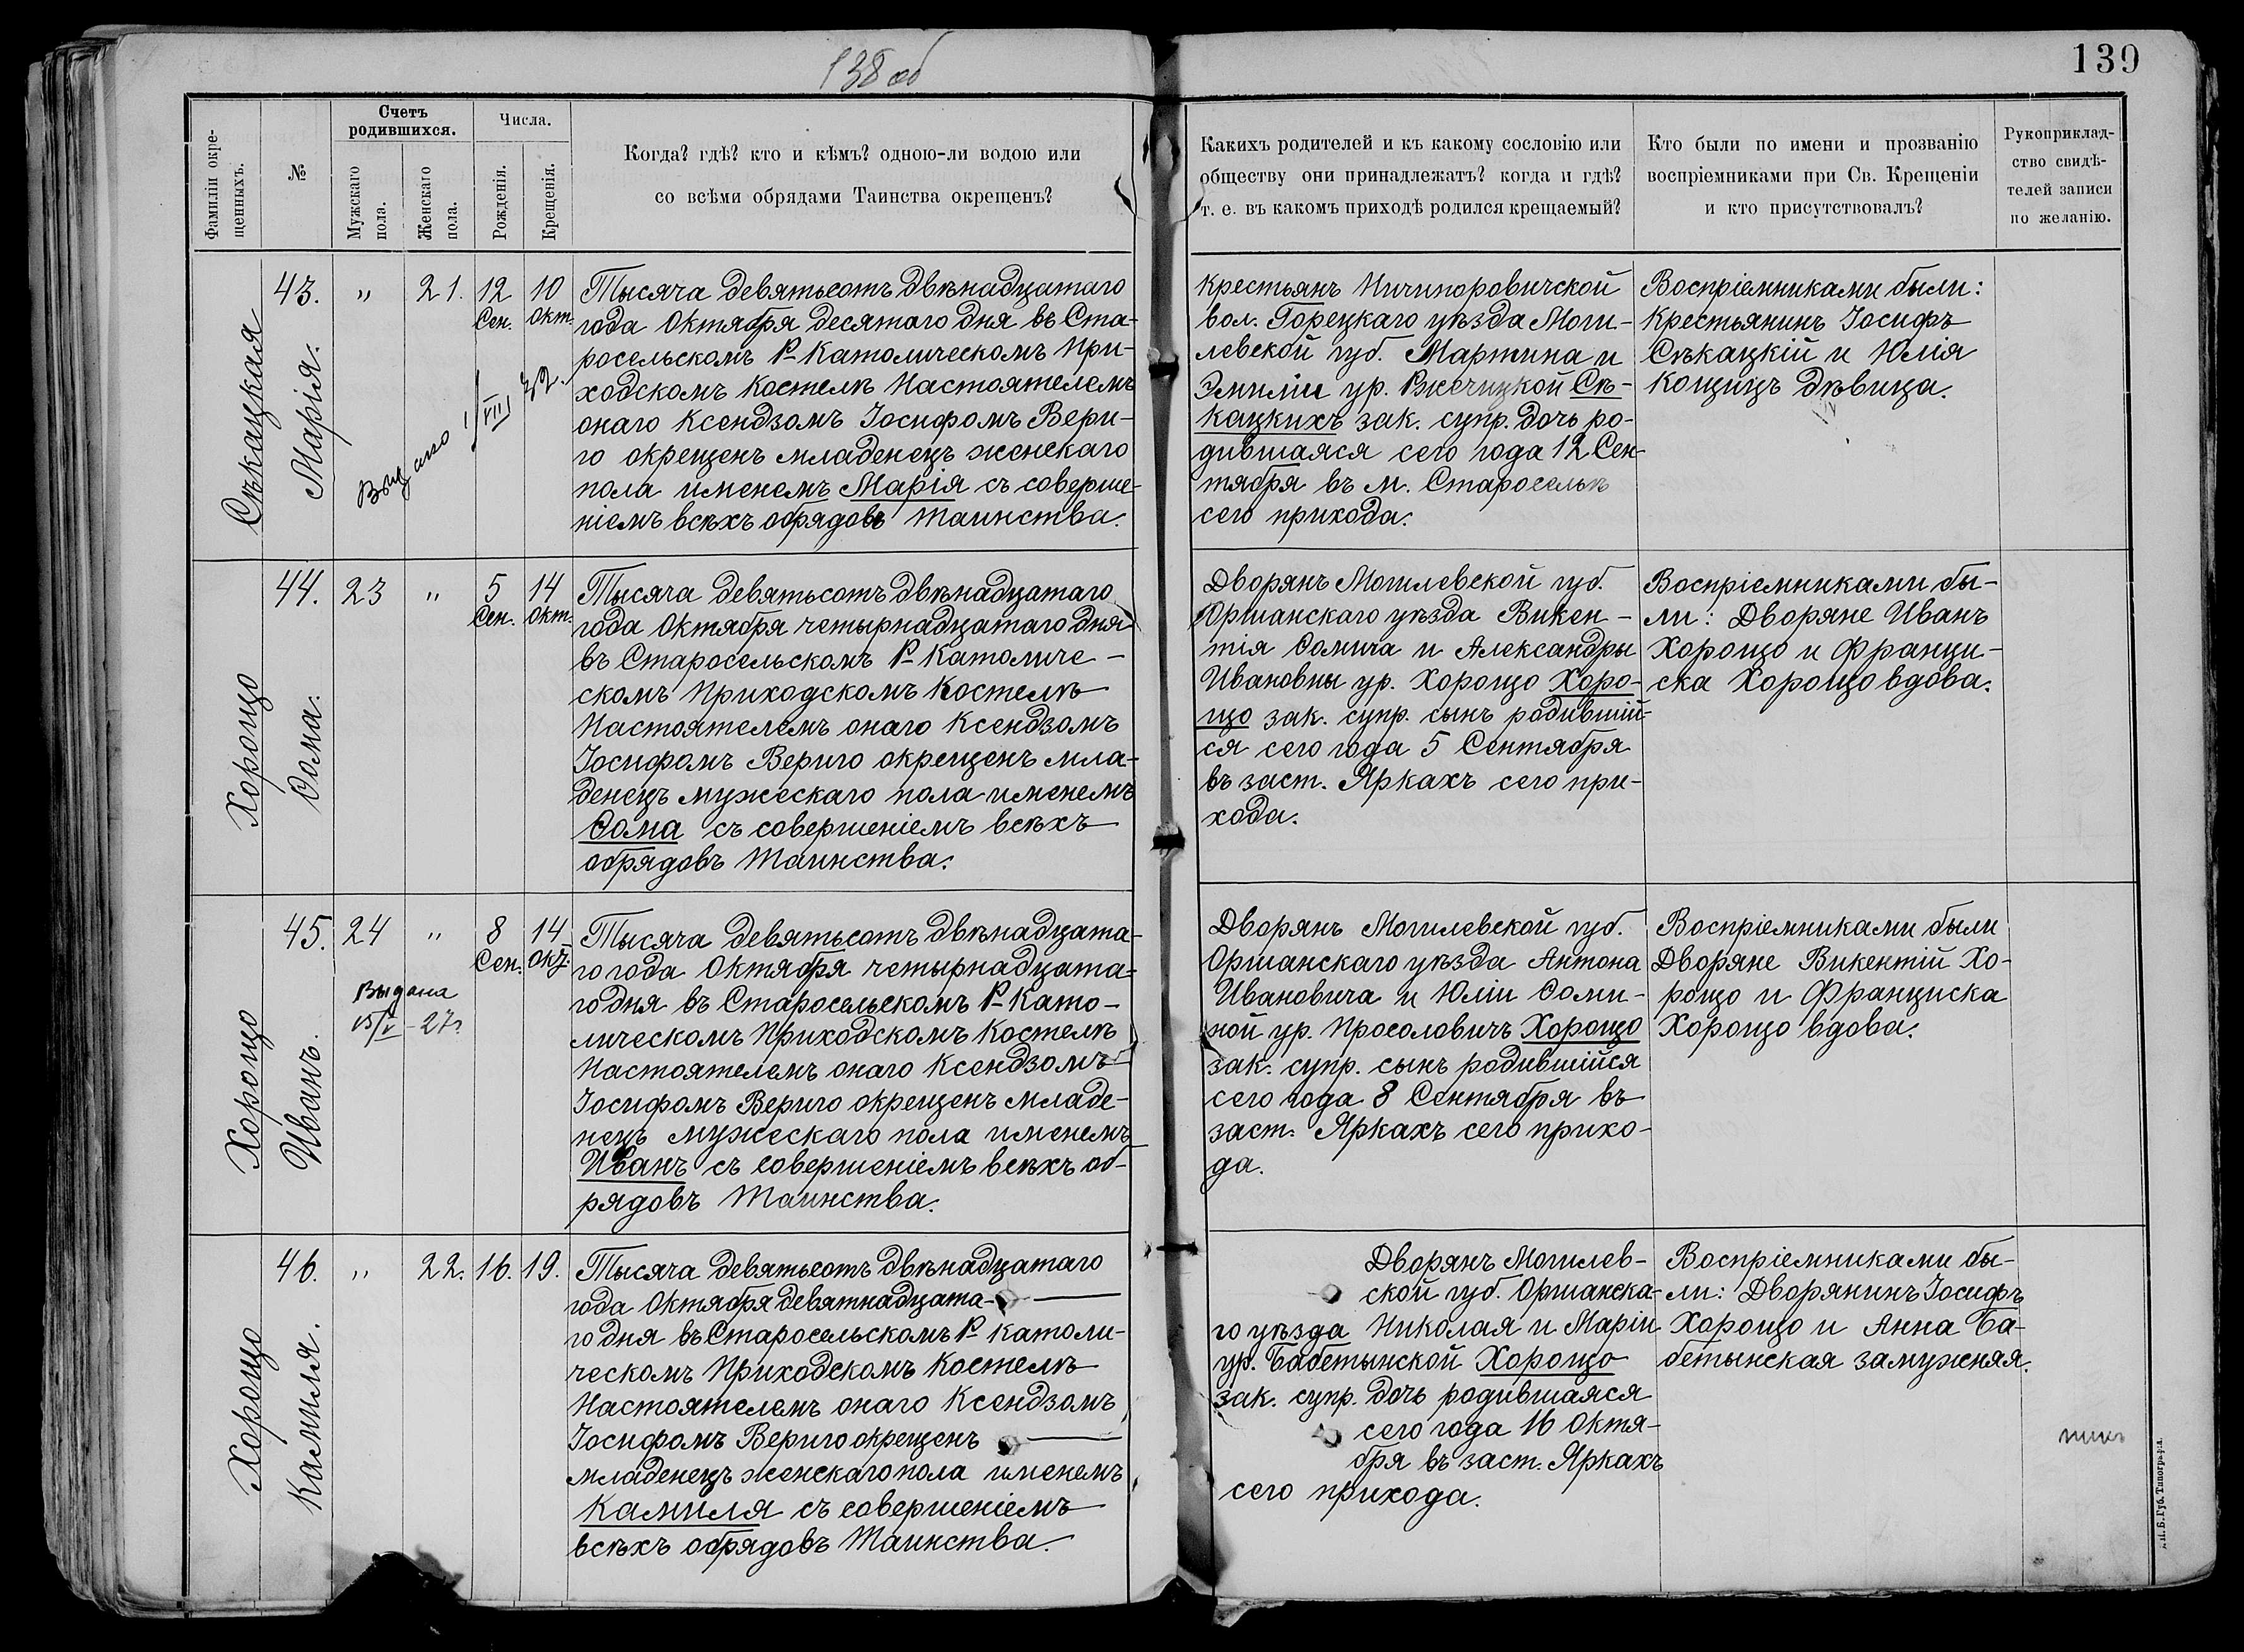 138 об
139
Фамиліи окре-
щенныхъ.
№
Счетъ
родившихся.
Мужскаго
пола.
Женскаго
пола.
Числа.
Рожденія.
Крещенія.
Когда? гдѣ? кто и кѣмъ? одною-ли водою или
со всѣми обрядами Таинства окрещенъ?
Какихъ родителей и къ какому сословію или
обществу они принадлежатъ? когда и гдѣ?
т. е. въ какомъ приходѣ родился крещаемый?
Кто были по имени и прозванію
воспріемниками при Св. Крещеніи
и кто присутствовалъ?
Рукоприклад-
ство свидѣ-
телей записи
по желанію.
Сѣкацкая
Марія.
43.
"
21.
12
Сен.
10
Окт.
Тысяча девятьсотъ двѣнадцатаго
года Октября десятаго дня въ Ста-
росельскомъ Р-Католическомъ При-
ходскомъ Костелѣ Настоятелемъ
онаго Ксендзомъ Іосифомъ Вери-
го окрещенъ младенецъ женскаго
пола именемъ Марія съ соверше-
ніемъ всѣхъ обрядовъ Таинства.
Крестьянъ Ничипоровичской
вол. Горецкаго уѣзда Моги-
левской губ. Мартина и
Эмиліи ур. Ржечицкой Сѣ-
кацкихъ зак. супр. дочь ро-
дившаяся сего года 12 Сен-
тября въ м. Староселье
сего прихода.
Воспріемниками были:
Крестьянинъ Іосифъ
Сѣкацкій и Юлія
Кощицъ дѣвица.
Хорощо
Ѳома.
44.
23
"
5
Сен.
14
Окт.
Тысяча девятьсотъ двѣнадцатаго
года Октября четырнадцатаго дня
въ Старосельскомъ Р-Католиче-
скомъ Приходскомъ Костелѣ
Настоятелемъ онаго Ксендзомъ
Іосифомъ Вериго окрещенъ мла-
денецъ мужескаго пола именемъ
Ѳома съ совершеніемъ всѣхъ
обрядовъ Таинства.
Дворянъ Могилевской губ.
Оршанскаго уѣзда Викен-
тія Ѳомича и Александры
Ивановны ур. Хорощо Хоро-
що зак. супр. сынъ родившій-
ся сего года 5 Сентября
въ заст. Яркахъ сего при-
хода.
Воспріемниками бы-
ли: Дворяне Иванъ
Хорощо и Францис-
ка Хорощо вдова.
Хорощо
Иванъ.
45.
24
"
8
Сен.
14
Окт.
Выдана
15/V-27г.
Тысяча девятьсотъ двѣнадцата-
го года Октября четырнадцата-
го дня въ Старосельскомъ Р-Като-
лическомъ Приходскомъ Костелѣ
Настоятелемъ онаго Ксендзомъ
Іосифомъ Вериго окрещенъ младе-
нецъ мужескаго пола именемъ
Иванъ съ совершеніемъ всѣхъ об-
рядовъ Таинства.
Дворянъ Могилевской губ.
Оршанскаго уѣзда Антона
Ивановича и Юліи Ѳоми-
ной ур. Просоловичъ Хорощо
зак. супр. сынъ родившійся
сего года 8 Сентября въ
заст. Яркахъ сего прихо-
да.
Воспріемниками были
Дворяне Викентій Хо-
рощо и Франциска
Хорощо вдова.
Хорощо
Камиля.
46.
"
22.
16.
19.
Тысяча девятьсотъ двѣнадцатаго
года Октября девятнадцата-
го дня въ Старосельскомъ Р-Католи-
ческомъ Приходскомъ Костелѣ
Настоятелемъ онаго Ксендзомъ
Іосифомъ Вериго окрещенъ
младенецъ женскаго пола именемъ
Камиля съ совершеніемъ
всѣхъ обрядовъ Таинства.
Дворянъ Могилев-
ской губ. Оршанска-
го уѣзда Николая и Маріи
ур. Бабетынской Хорощо
зак. супр. дочь родившаяся
сего года 16 Октя-
бря въ заст. Яркахъ
сего прихода.
Воспріемниками бы-
ли: Дворянинъ Іосифъ
Хорощо и Анна Ба-
бетынская замужняя.
Губ. Типографія.